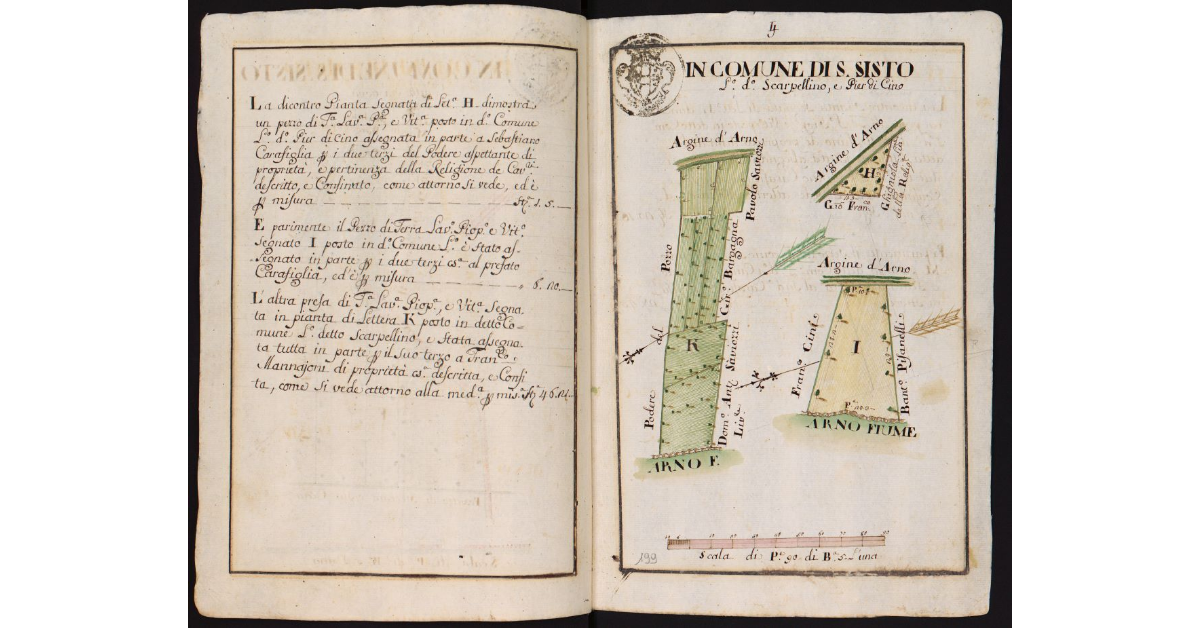 La dicontro Pianta Segnata di Let.ª H. dimostra
un pezzo di T.ª Lav.ª P.ª, e Vit.ª posto in d.º Comune
L.º d.º Pier di Cino assegnata in parte a Sebastiano
Carafiglia p i due terzi del Podere aspettante di
proprietà, e pertinenza della Religione de Cav.ri
descritto, e Confinato, come attorno si vede, ed è
p misura 1. 5.
E parimente il Pezzo di Terra Lav.ª Piop.ª e Vit.ª
Segnato I posto in d.º Comune L.º è Stato as-
segnato in parte p i due terzi cs.ª al prefato
Carafiglia, ed è p misura 6.
L'altra presa di T.ª Lav.ª Piop.ª, e Vit.ª Segna
ta in pianta di Lettera K posto in detto Co-
mune L.º detto Scarpellino, e Stata assegna-
ta tutta in parte p il Suo terzo a Fran.co
Mannajoni di proprietà cs.ª descritta, e Confi
ta, come si vede attorno alla med.ª p mis.ª 46.
4
IN COMUNE DI S. SISTO
L.º d.º Scarpellino, e Pier di Cino
Argine d'Arno
Pavolo Saviozzi
Podere del Pozzo
Gio: Bargagna
K
Dom.º Ant.º Saviozzi
Liv.º
ARNO F.
Argine d'Arno
H
Gio Fran.co
Ghiaiola
della Relig.e
Argine d'Arno
Fran.º Cinti
I
Ban.º Pisanelli
ARNO FIUME
Scala di P.e 90 di B.a 5 l'una
199